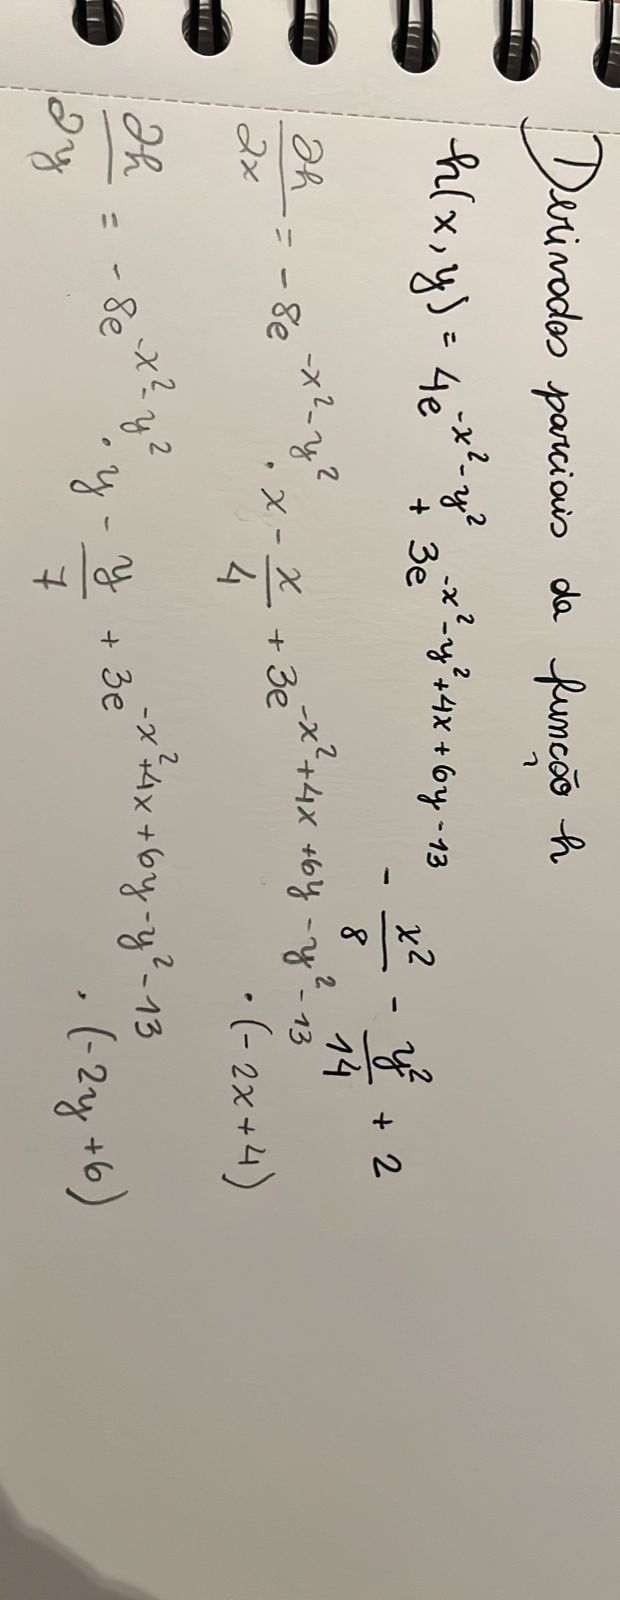 Derivadas parciais da função h
h(x,y) = 4e^{-x²-y²} + 3e^{-x²-y²+4x+6y-13} - x²/8 - y²/14 + 2
∂h/∂x = -8e^{-x²-y²} · x - x/4 + 3e^{-x²+4x+6y-y²-13} · (-2x+4)
∂h/∂y = -8e^{-x²-y²} · y - y/7 + 3e^{-x²+4x+6y-y²-13} · (-2y+6)